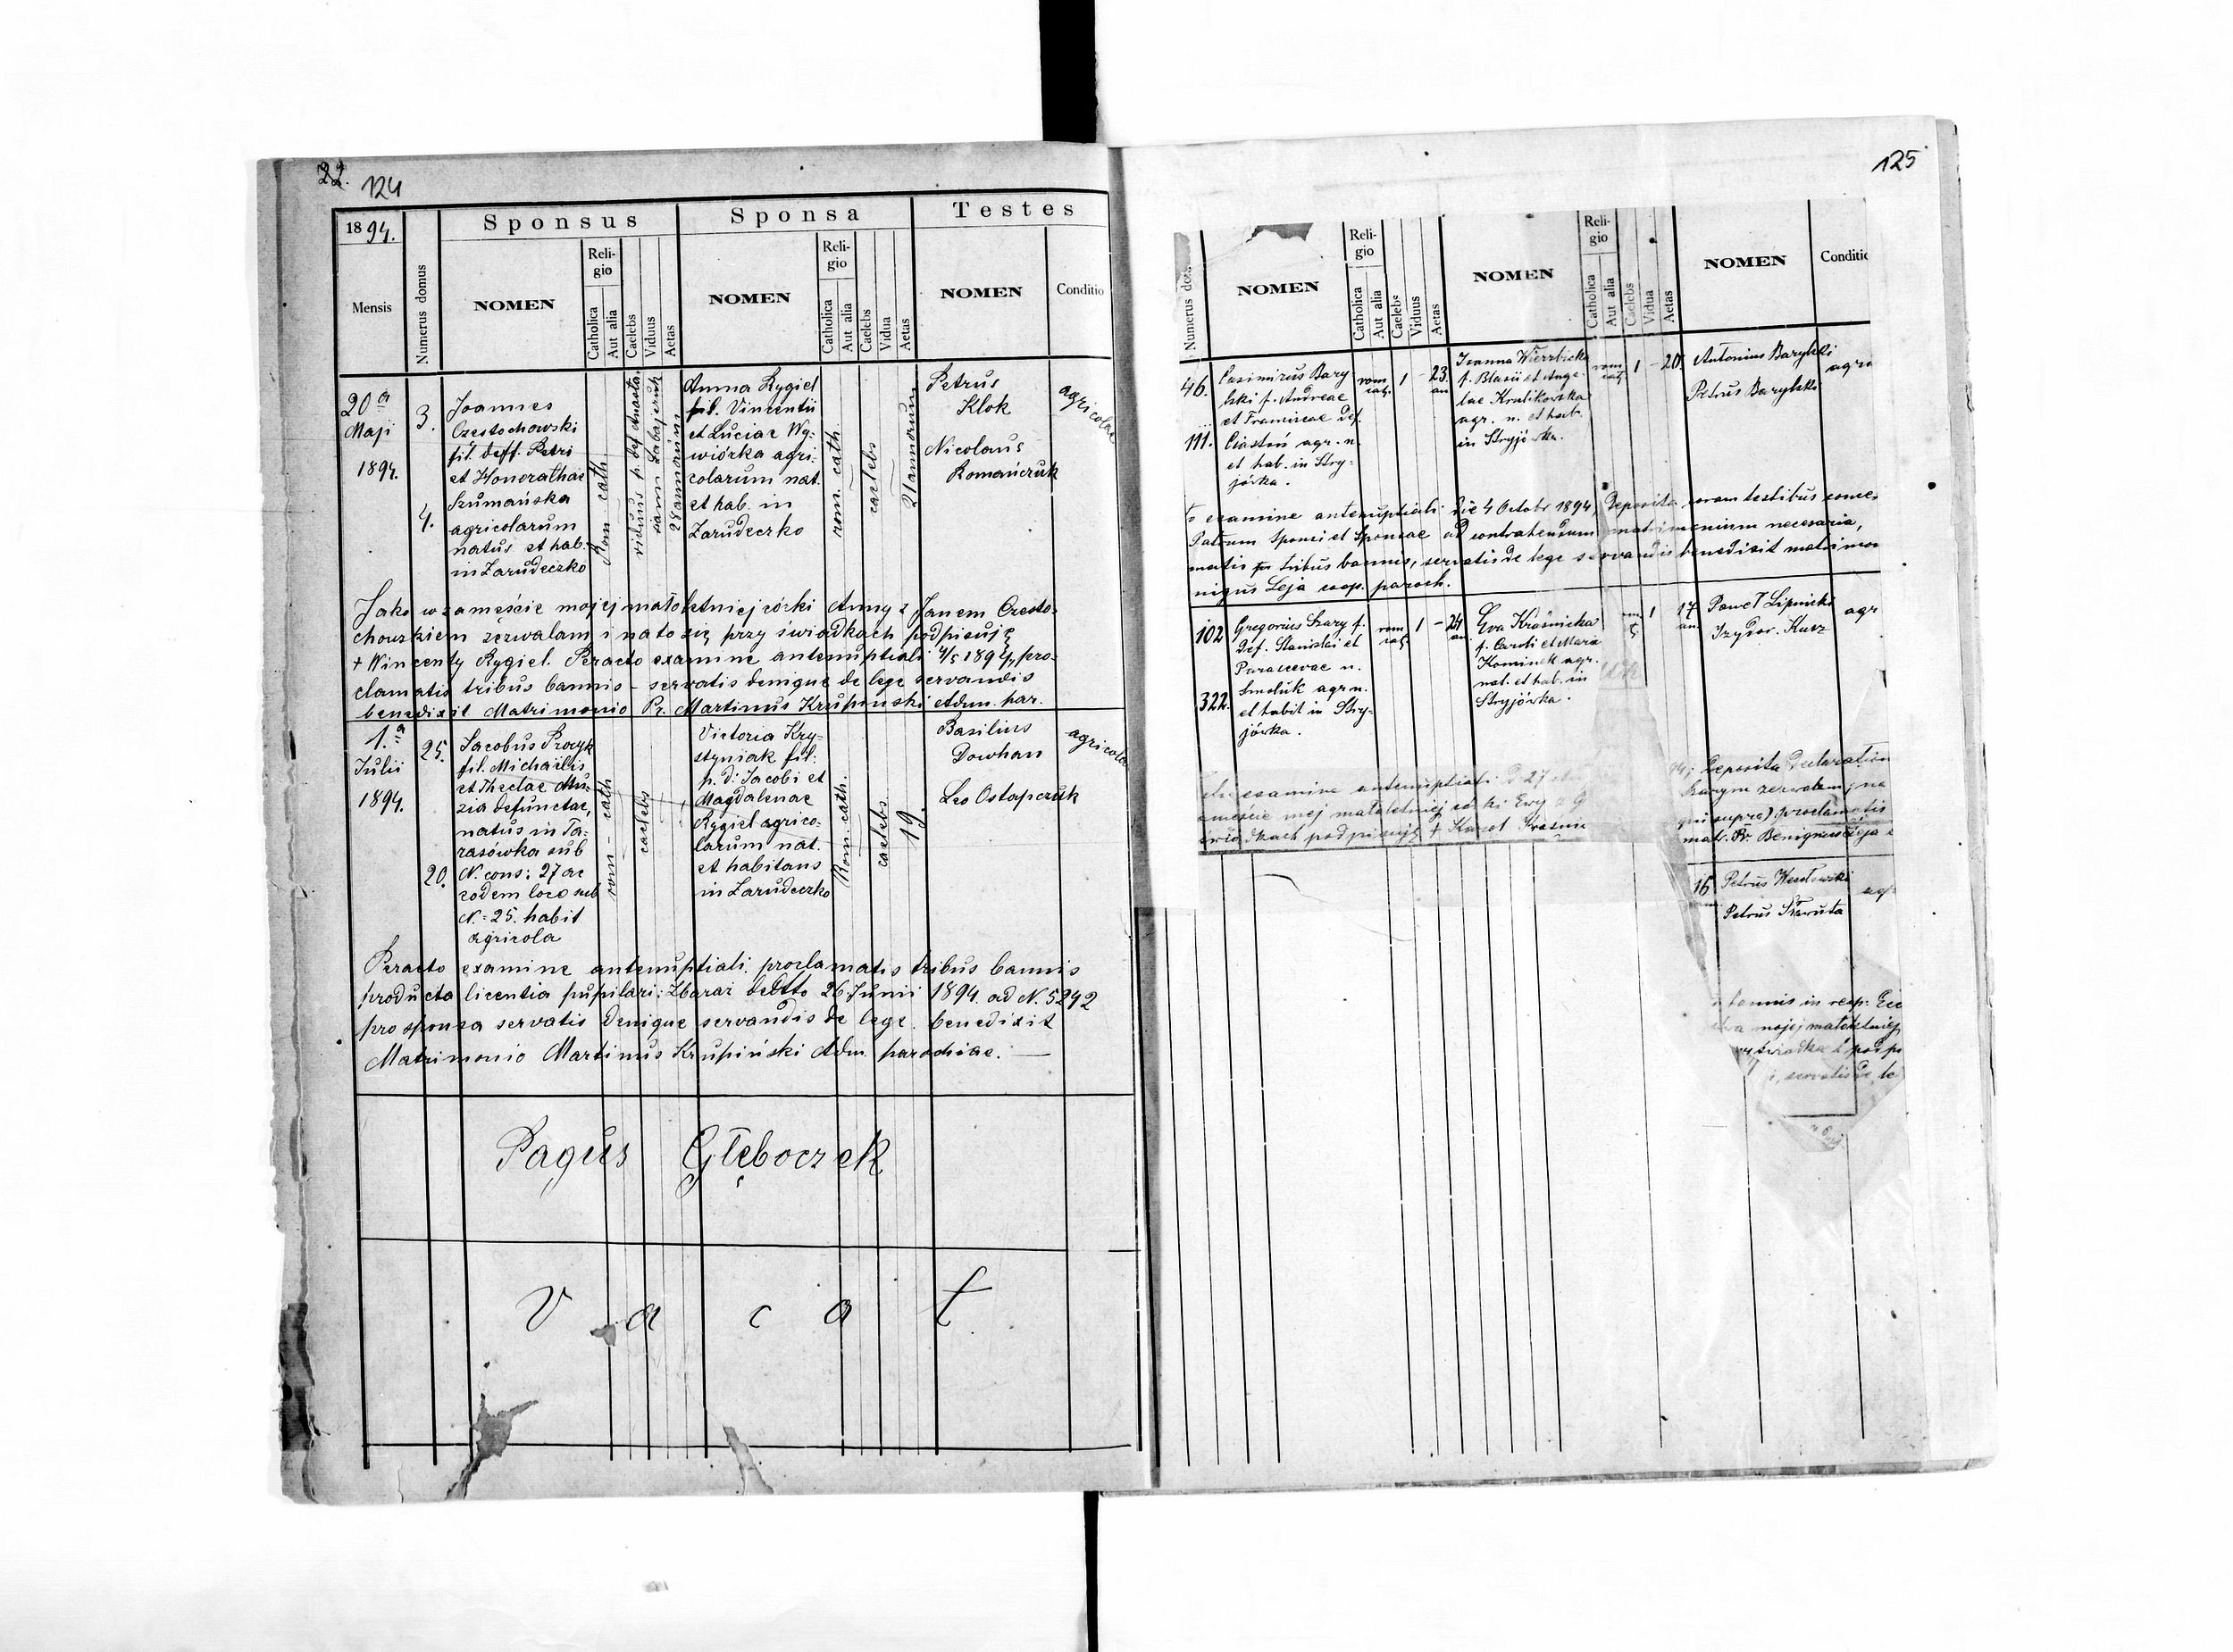 22.
124
1894.
Sponsus
Sponsa
Testes
Mensis
Numerus domus
NOMEN
Religio
Catholica
Aut alia
Caelebs
Viduus
Aetas
NOMEN
Religio
Catholica
Aut alia
Caelebs
Vidua
Aetas
NOMEN
Conditio
20a
Maji
1894.
3.
4.
Joannes
Czestochowski
fil. deff. Petri
et Honorathae
Szumańska
agricolarum
natus et hab.
in Zarudeczko
Rom cath
viduus p. def Anasta.
28 annorum
Anna Rygiel
fil. Vincentii
et Luciae Wy=
wiórka agri=
colarum nat.
et hab. in
Zarudeczko
rom. cath.
caelebs
21 annorum
Petrus
Klok
Nicolaus
Romańczuk
agricolae
Jako w zamęście mojej małoletniej córki Anny z Janem Czesto=
chowskiem zezwalam i na to się przy świadkach podpisuję
+ Wincenty Rygiel. Peracto examine antenuptiali 4/5 1894, pro=
clamatis tribus bannis – servatis denique de lege servandis
benedixit Matrimonio Pr. Martinus Krupinski Adm. par.
1.a
Julii
1894.
25.
20.
Jacobus Procyk
fil. Michaelis
et Theclae Mu=
zia defunctae,
natus in Ta=
rasówka sub
N. cons: 27 ac
eodem loco sub
N. 25. habit
agricola
rom – cath
caelebs
Victoria Kry=
styniak fil.
p. d. Jacobi et
Magdalenae
Rygiel agrico=
larum nat.
et habitans
in Zarudeczko
Rom. cath.
caelebs
19.
Basilius
Dowhan
Leo Ostapczuk
agricolae
Peracto examine antenuptiali, proclamatis tribus bannis
producta licentia pupilari: Zbaraż ddtto 26 Junii 1894 ad N. 5242
pro sponsa servatis denique servandis de lege. benedixit
Matrimonio Martinus Krupiński Adm. parochiae. —
Pagus Głęboczek
Vacat
125
Numerus
NOMEN
Religio
Catholica
Aut alia
Caelebs
Viduus
Aetas
NOMEN
Religio
Catholica
Aut alia
Caelebs
Vidua
Aetas
NOMEN
Conditio
46.
111.
Casimirus Bary
lski f. Andreae
et Franciscae Def.
Ciastoń agr. n.
et hab. in Stry=
jówka.
rom cat.
1 – 23. an
Joanna Wierzbicka
f. Blasii et Ange=
lae Krulikowska
agr. n. et hab.
in Stryjówka.
rom cat.
1 – 20.
Antonius Barylski
Petrus Barylski
agri
to examine antenuptiali die 4 Octobr 1894, Deposita coram testibus conse.
Patrum Sponsi et Sponsae ad contrahendum matrimonium necesaria,
matis tribus bannis, servatis de lege servandis benedixit matrimon
nignus Leja coop. paroch.
102
322.
Gregorius Szary f.
Def. Stanislai et
Parascevae n.
Smoluk agr n.
et habit in Stry=
jówka.
rom cat.
1 – 24 an
Eva Kraśnicka
f. Caroli et Maria
Kominek agr.
nat. et hab. in
Stryjówka.
1
17 an.
Paweł Lipnicki
Izydor. Kurz
agr
examine antenuptiali D 27
94; Deposita Declaration
amęście mej małoletniej córki Ewy z G
Szarym zezwalam; na
świadkach podpisuję + Karol Kraśnic
supra) proclamatis
matr. Pr Benignus Leja
16
Petrus Wesołowski
Petrus Skaruta
agr
bannis in resp. Ecc
mojej małoletniej
servatis de le